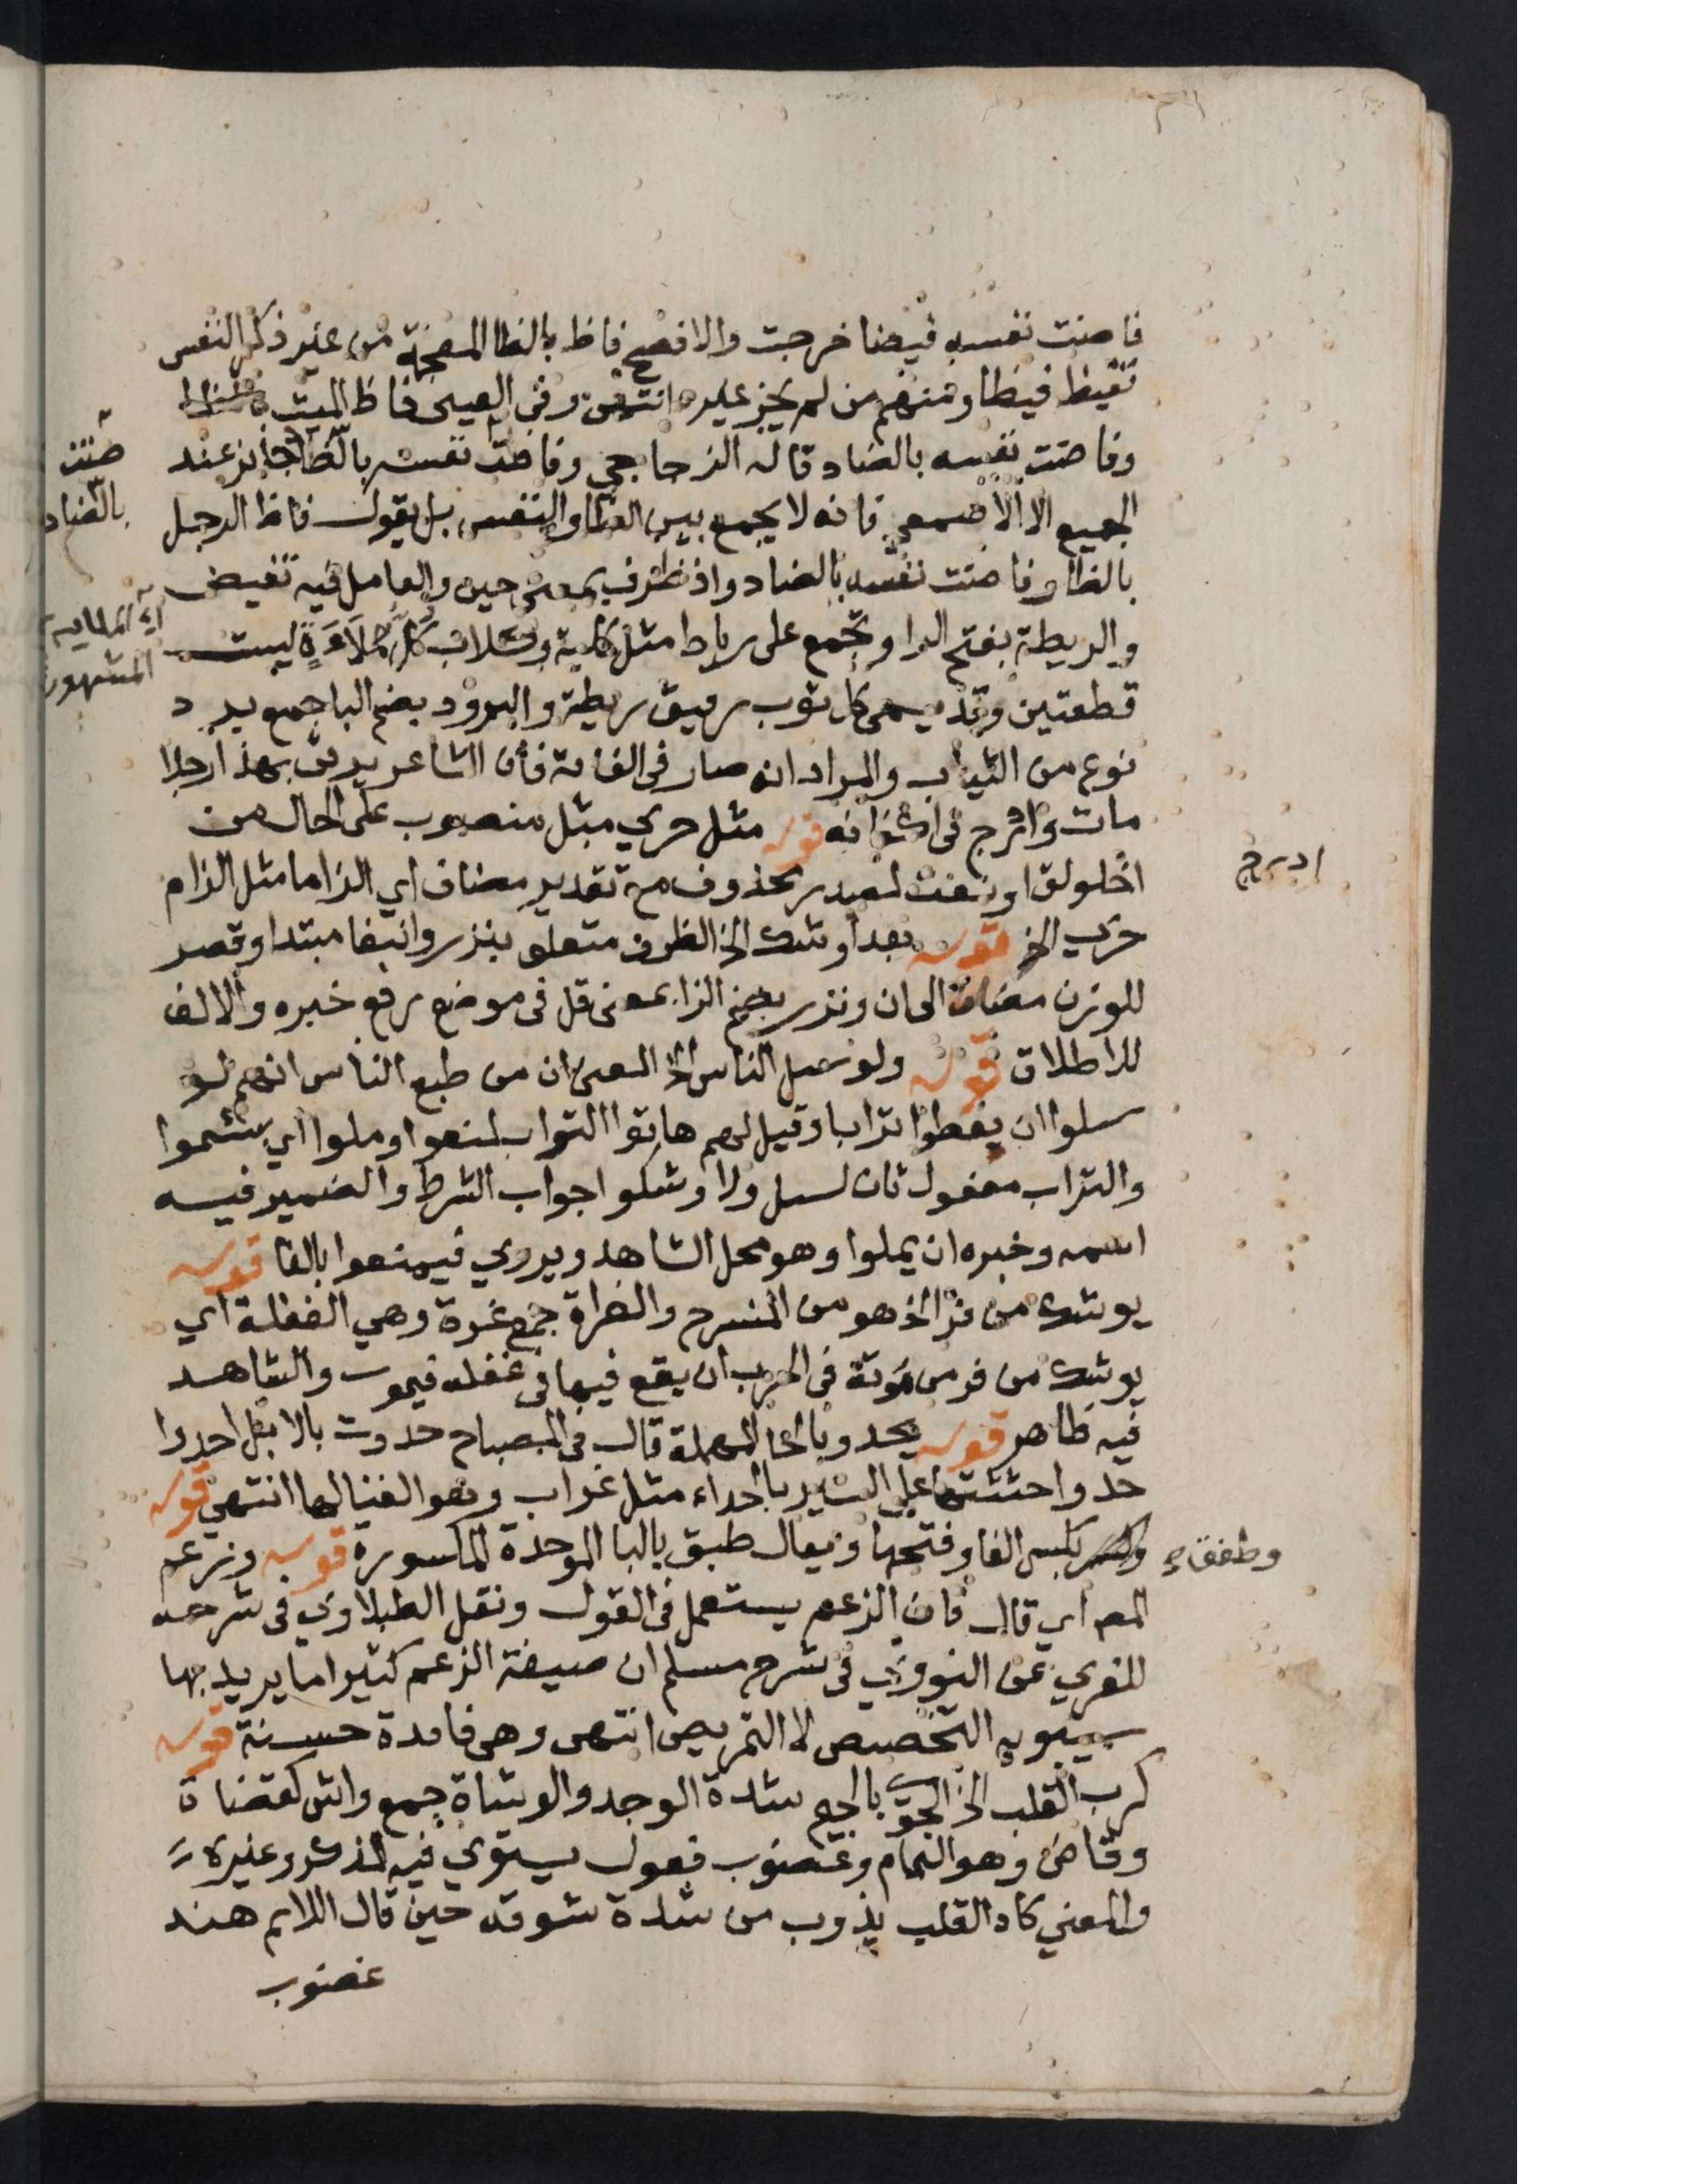 فاضت نفسه فيضا خرجت والافصح فاظ بالظا المعجمة من غير ذكر النفس
تفيظ فيظا ومنهم من لم يجز غيره انتهى وفي العيني فاظ الميت بالظا
وفاضت نفسه بالضاد قاله الزجاجي وفاظت نفسه بالظا جائز عند
الجميع الا الاصمعي فانه لا يجمع بين الظا والنفس بل يقول فاظ الرجل
بالظا وفاضت نفسه بالضاد واذ ظرف بمعنى حين والعامل فيه تفيض
والريطة بفتح الرا وتجمع على رياط مثل كلبة وكلاب كل ملاءة ليست
قطعتين وقد يسمى كل ثوب رقيق ريطة والبرود بضم البا جمع برد
نوع من الثياب والمراد انه صار في الفانه فأن الشاعر يرثى بهذا رجلا
مات وادرج في اكفانه قوله مثل حري مثل منصوب على الحال من
اخلولق او نعت لمصدر محذوف مع تقدير مضاف اي الزاما مثل الزام
حرى الخ قوله بعد اوشك الخ الظرف متعلق بنزر وانتفا مبتدا وقصر
للوزن مضاف الى ان ونزر بضم الزا بمعنى قل في موضع رفع خبره والالف
للاطلاق قوله ولو سئل الناس الخ المعنى ان من طبع الناس انهم لو
سئلوا ان يعطوا ترابا وقيل لهم هاتوا التراب لمنعوا وملوا اي سئموا
والتراب مفعول ثان لسئل ولاوشكوا جواب الشرط والضمير فيه
اسمه وخبره ان يملوا وهو محل الشاهد ويروي فيمنعوا بالفا قوله
يوشك من فر الخ هو من المنسرح والغراة جمع غرة وهي الغفلة اي
يوشك من فر من موتة في الحرب ان يقع فيها في غفلة فيموت والشاهد
فيه ظاهر قوله يحدو بالحا المهملة قال في المصباح حدوت بالابل احدوا
حدوا حثثتها على السير بالحداء مثل غراب وهو الغنا لها انتهى قوله
بكسر الفا وفتحها ويقال طبق بالبا الموحدة المكسورة قوله وزعم
المص اي قال فان الزعم يستعمل في القول ونقل الطبلاوي في شرحه
للغزي عن النووي في شرح مسلم ان صيغة الزعم كثيرا ما يريد بها
سيبويه التخصيص لا التمريض انتهى وهي فائدة حسنة قوله
كرب القلب الخ الجوى بالجيم شدة الوجد والوشاة جمع واش كقضاة
وقاض وهو النمام وغضوب فعول يستوي فيه المذكر وغيره
والمعني كاد القلب يذوب من شدة شوقه حين قال اللايم هند
غضوب
ادرج
وطفق
بالضاد
المشهورة